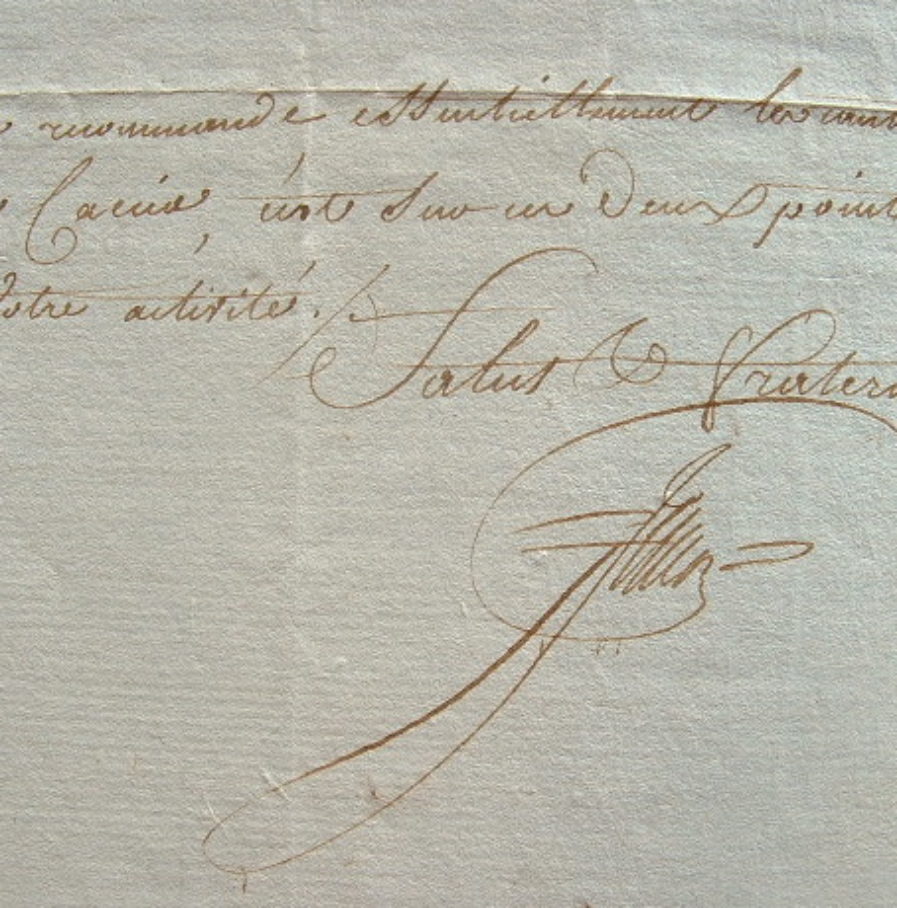 recommande essentiellement les
c'est sur ces Deux point
Votre activité ./.
Salut & Fratern